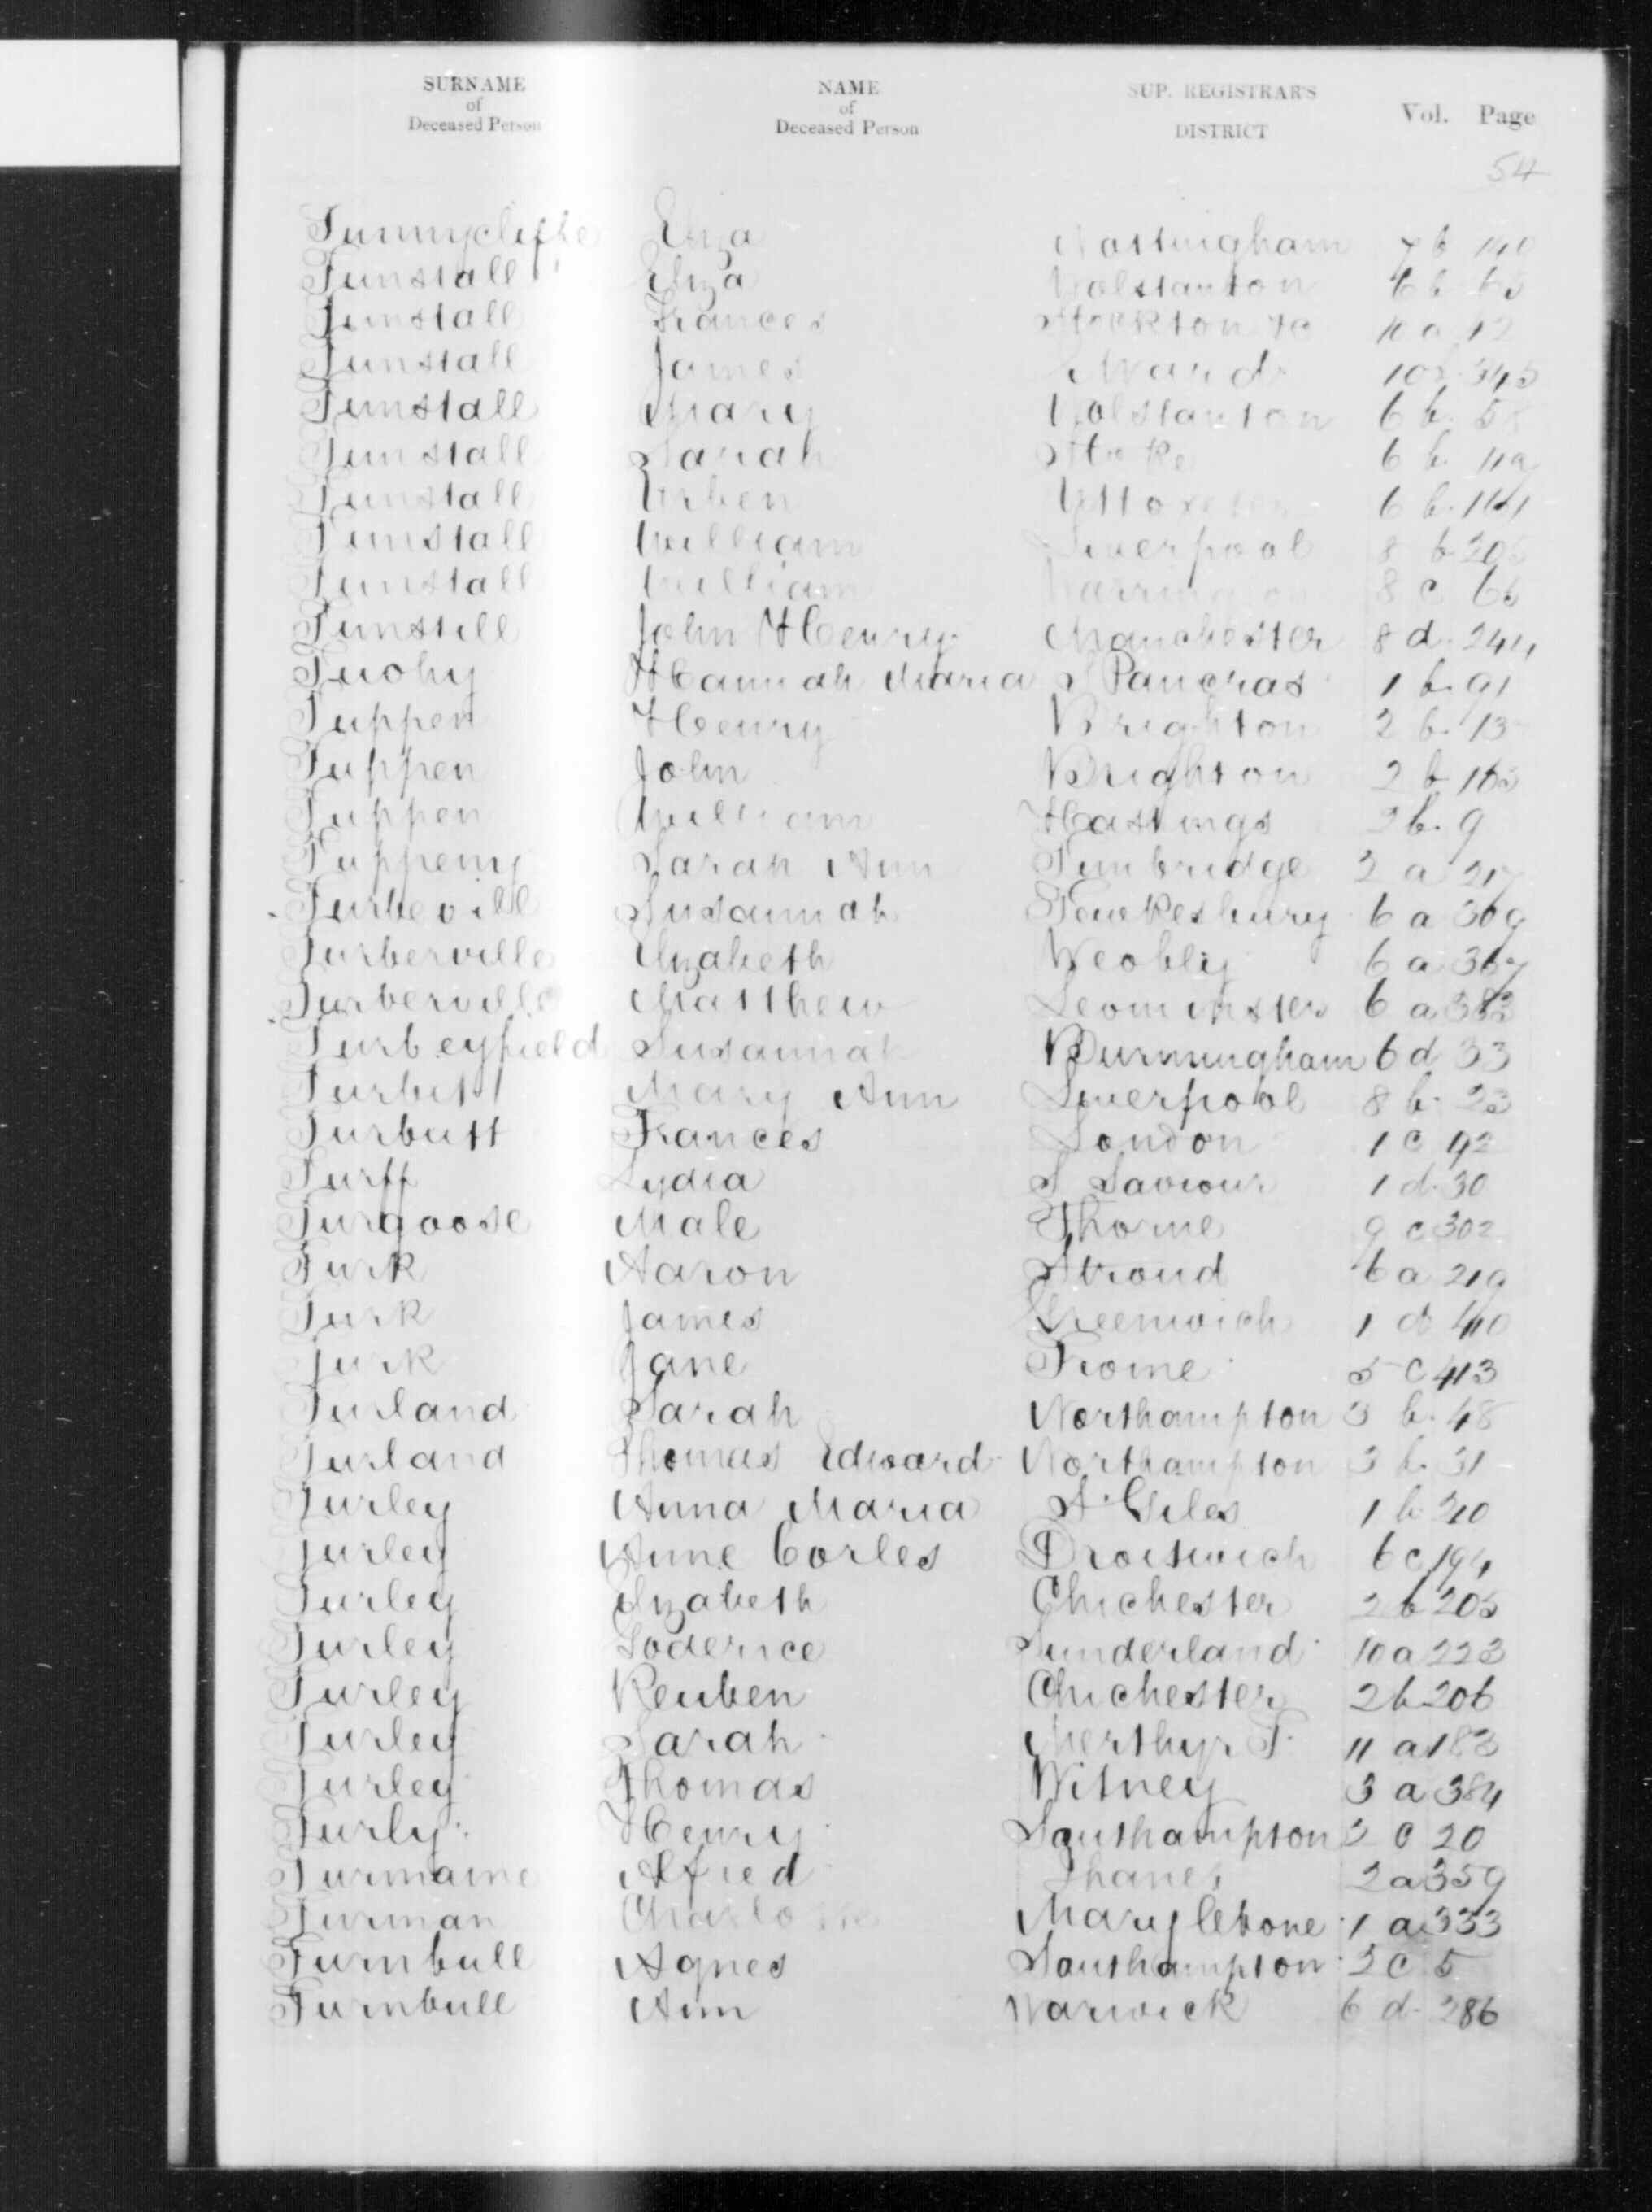 SURNAME of Deceased Person NAME of Deceased Person SUP. REGISTRAR'S DISTRICT Vol. Page
54
Tunnycliffe Eliza Nottingham 7 b 140
Tunstall Eliza Wolstanton 6 b
Tunstall Frances Stockton 10 a 12
Tunstall James Ward 345
Tunstall Mary Wolstanton 6 b
Tunstall Sarah Stoke 6 b 119
Tunstall Urben Uttoxeter 6 b
Tunstall William Liverpool 8 b 205
Tunstall William Warrington 8 c
Tunstill John Henry Manchester 8 d 244
Tuohy Hannah Maria S Pancras 1 b 91
Tuppen Henry Brighton 2 b
Tuppen John Brighton 2 b
Tuppen William Hastings 2 b 9
Tuppeny Sarah Ann Tunbridge 2 a 217
Turbevill Susannah Tewkesbury 6 a 369
Turberville Elizabeth Weobly 6 a 367
Turberville Matthew Leominster 6 a 383
Turbeyfield Susannah Birmingham 6 d 33
Turbitt Mary Ann Liverpool 8 b 23
Turbutt Frances London 1 c 92
Turff Lydia S Saviour 1 d 30
Turgoose Male Thorne 9 c 302
Turk Aaron Stroud 6 a 219
Turk James Greenwich 1 d 410
Turk Jane Frome 5 c 413
Turland Sarah Northampton 3 b 48
Turland Thomas Edward Northampton 3 b 31
Turley Anna Maria St Giles 1 b 210
Turley Anne Corles Droitwich 6 c 194
Turley Elizabeth Chichester 2 b 205
Turley Foderice Sunderland 10 a 223
Turley Reuben Chichester 2 b 206
Turley Sarah Merthyr T. 11 a 183
Turley Thomas Witney 3 a 384
Turly Henry Southampton 2 c 20
Turmaine Alfred Thanet 2 a 359
Turman Charlotte Marylebone 1 a 333
Turnbull Agnes Southampton 2 c 5
Turnbull Ann Warwick 6 d 286